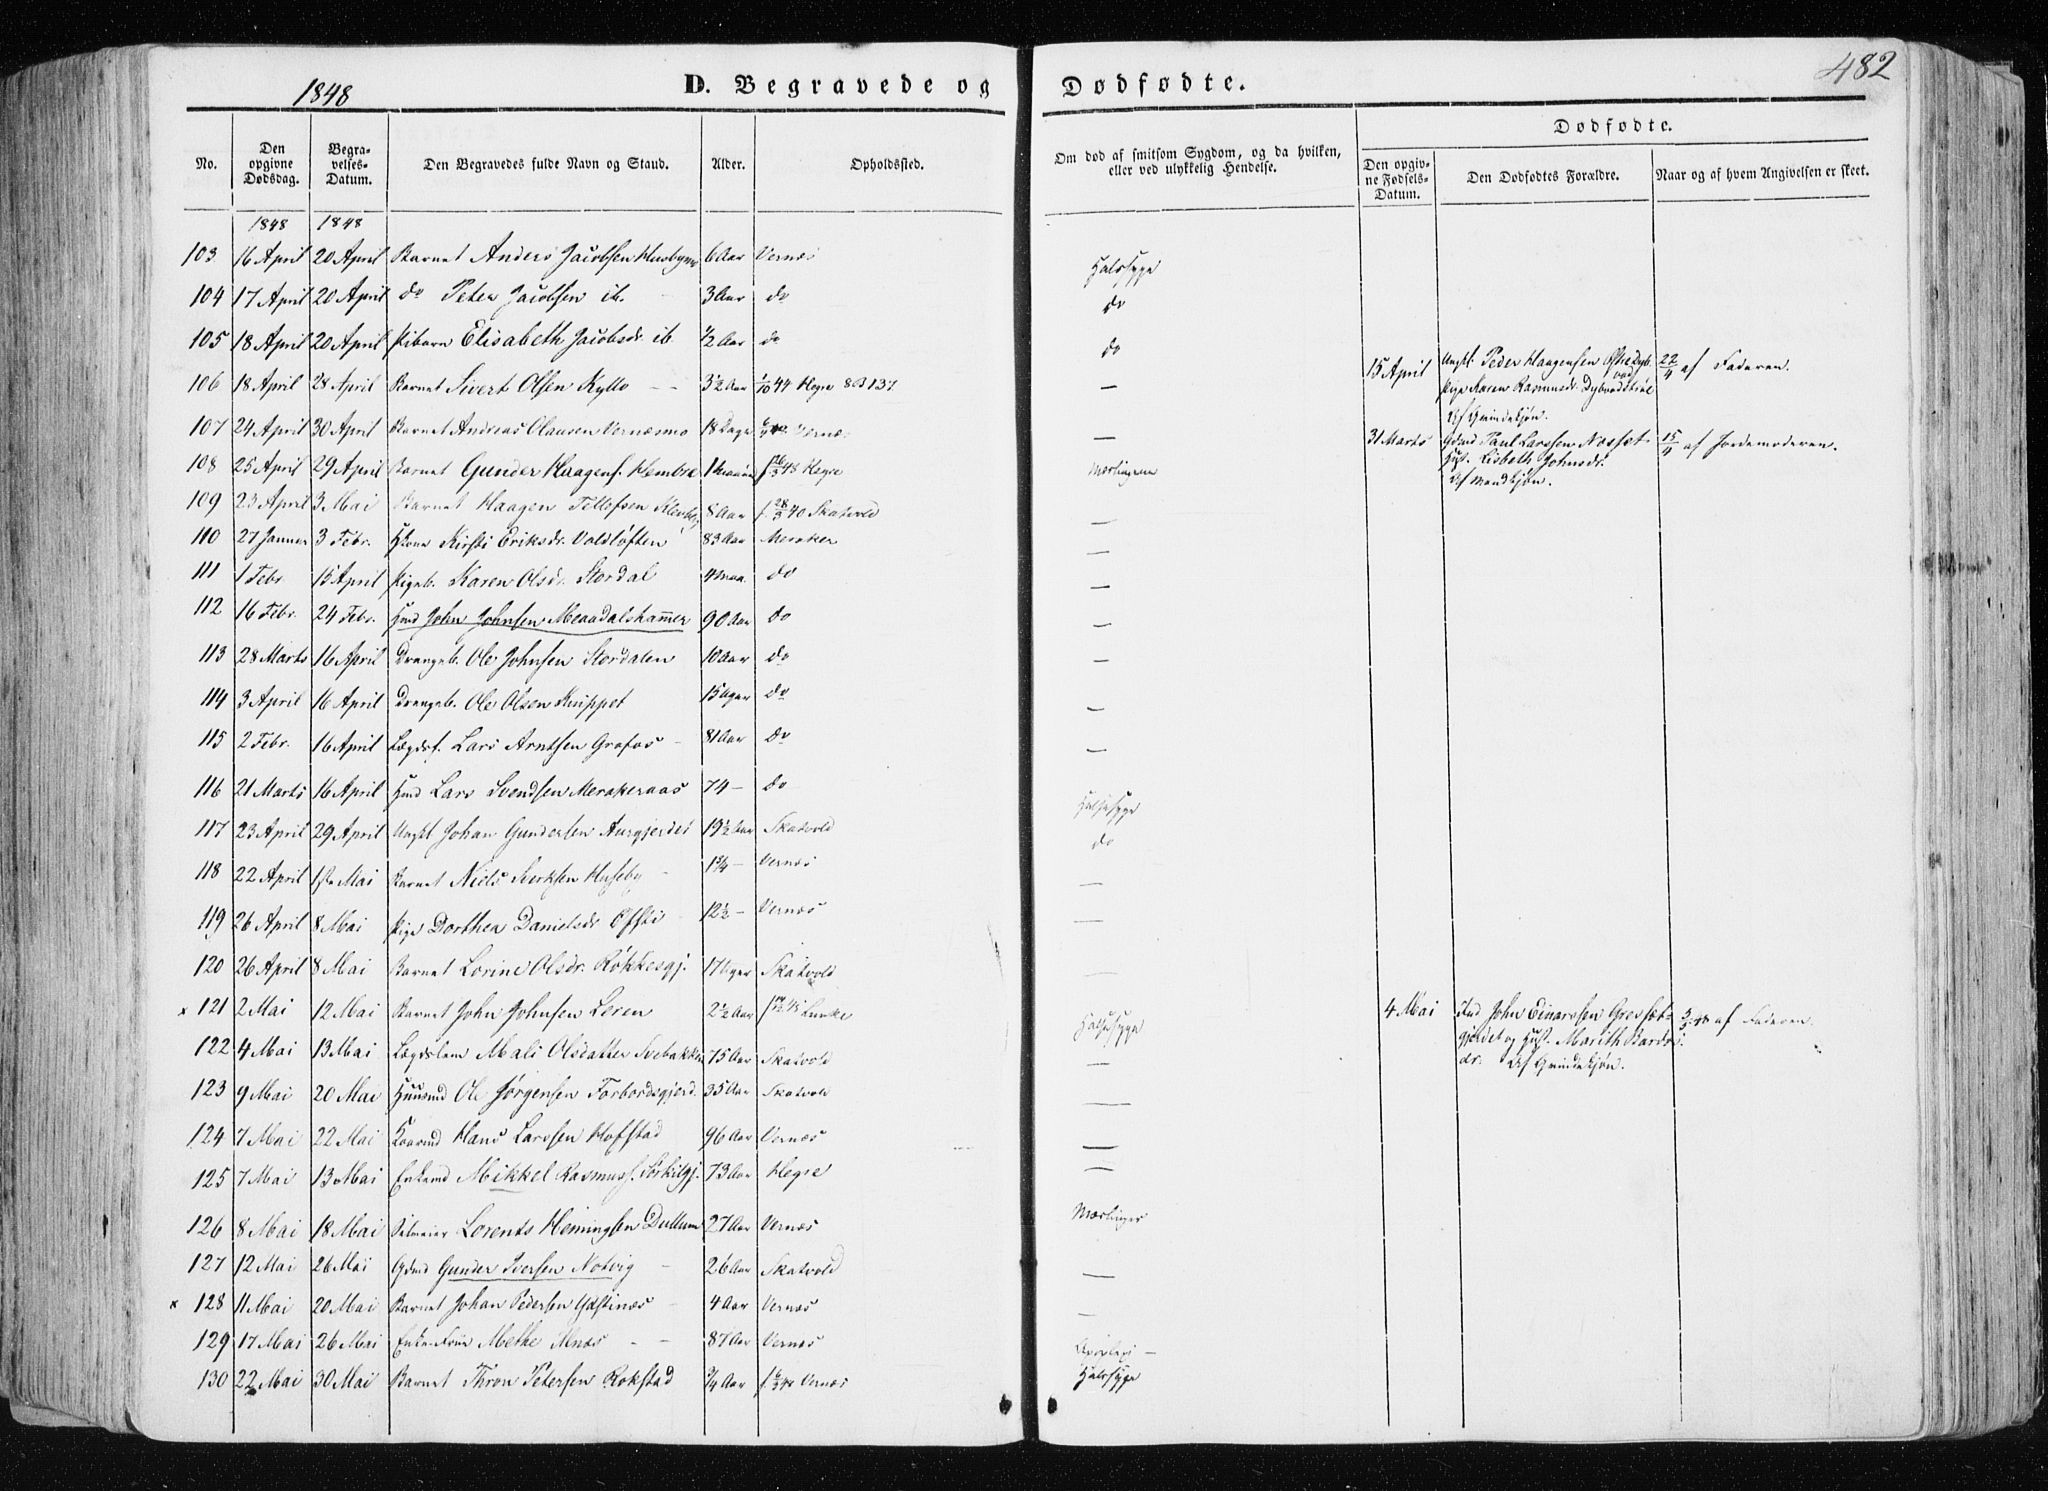 1848
D. Begravede og Dødfødte.
482
Dødfødte.
No.
Den opgivne Dødsdag.
Begravelses-Datum.
Den Begravedes fulde Navn og Stand.
Alder.
Opholdssted.
Om død af smitsom Sygdom, og da hvilken, eller ved ulykkelig Hendelse.
Den opgivne Fødsels-Datum.
Den Dødfødtes Forældre.
Naar og af hvem Angivelsen er skeet.
1848 1848
103 16 April 20 April Barnet Anders Jacobsen 6 Aar Vernæs Halssyge
104 17 April 20 April do Peter Jacobsen ib. 3 Aar do do
105 18 April 20 April Pibarn Elisabeth Jacobsdr ib. 1/2 Aar do do
15 April Ungk. Peder Haagensen 22/4 af Faderen.
Pige Karen Rasmusdr.
Af Qvindekjøn.
106 18 April 28 April Barnet Sivert Olsen Kyllo — — 3 1/2 Aar 1/10 44 Hegre 8 B 137 —
107 24 April 30 April Barnet Andreas Olausen Vernæsmo 18 Dage Vernæs —
31 Marts Gdmd Paul Larssen 15/4 af Jordemoderen.
Hust. Lisbeth Johnsdr.
Af Mandkjøn.
108 25 April 29 April Barnet Gunder Haagens. Hembre 1 Hegre Mæslingene
109 23 April 3 Mai Barnet Haagen Tellefsen 8 Aar f. 28/3 40 Skatvold —
110 27 Januar 3 Febr. Kirsti Eriksdr. Voldløften 83 Aar Meraker —
111 1 Febr 15 April Pigeb. Karen Olsdr. Stordal 4 maa. do —
112 16 Febr. 24 Febr. John Johnsen 90 Aar do —
113 28 Marts 16 April Drengeb. Ole Johnsen Stordalen 10 Aar do —
114 3 April 16 April Drengeb. Ole Olsen Knippet 15 Uger do —
115 2 Febr. 16 April Lægdsf. Lars Arntsen Grofos — 81 Aar do —
116 21 Marts 16 April Lars Svendsen Merakeraas 74 — do Halssyge
117 23 April 29 April Ungkl Johan Gundersen 19 1/2 Aar Skatvold do
118 22 April 1ste Mai Barnet Niels Huseby — 1 3/4 — Vernæs —
119 26 April 8 Mai Pige Dorthea Danielsdr Øfsti — 12 1/2 — Vernæs —
120 26 April 8 Mai Barnet Lorine Olsdr. Røkkesgj. 17 Uger Skatvold —
x 121 2 Mai 12 Mai Barnet John Johnsen Leren 2 1/2 Aar Lånke Halssyge
4 Mai Ind John Einarssen Gresset- af Faderen.
gjerdet og Hust. Marith Bards-
dr. Af Qvindekjøn.
122 4 Mai 13 Mai Lægdslem Mali Olsdatter Svebakken 75 Aar Skatvold —
123 9 Mai 20 Mai Huusmd Ole Jørgensen Forbordsgjerd. 35 Aar Skatvold —
124 7 Mai 22 Mai Kaarmd Hans Larssen Hofstad 96 Aar Vernæs —
125 7 Mai 13 Mai Enkemd Mikkel Rasmuss. 73 Aar Hegre —
126 8 Mai 18 Mai Selveier Lorents Hemingsen Dullum 27 Aar Vernæs Mæslinger
127 12 Mai 26 Mai Gdmd Gunder Iversen Notvig — 26 Aar Skatvold —
x 128 11 Mai 20 Mai Barnet Johan Pedersen Ydstines — 4 Aar Vernæs —
129 17 Mai 26 Mai Enke-Frue Methe — — 87 Aar Vernæs Apoplexi —
130 22 Mai 30 Mai Barnet Thron Petersen Rokstad 3/4 Aar Vernæs Halssyge